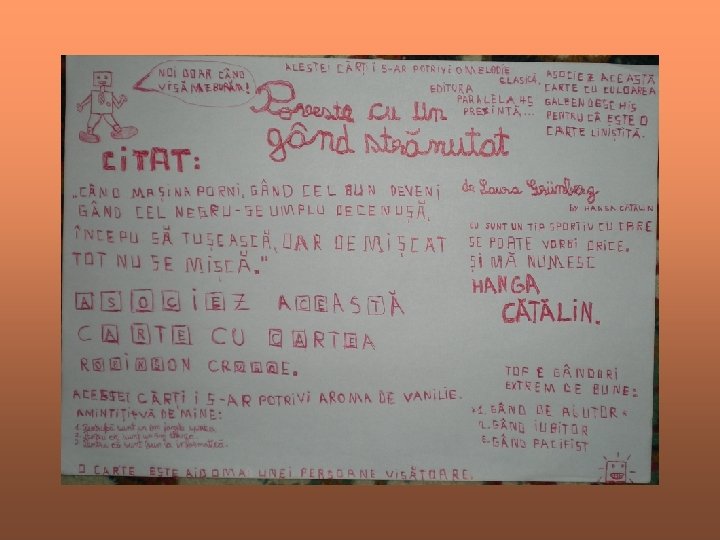 NOI DOAR CÂND
VISĂM EBURĂM!
ACESTEI CĂRȚI I S-AR POTRIVI O MELODIE
CLASICĂ.
EDITURA
PARALELA 45
PREZINTĂ...
ASOCIEZ ACEASTĂ
CARTE CU CULOAREA
GALBEN DESCHIS
PENTRU CĂ ESTE O
CARTE LINIȘTITĂ.
Poveste cu un
gând strănutat
de Laura Grünberg
BY HANGA CĂTĂLIN
CITAT:
„CÂND MAȘINA PORNI, GÂND CEL BUN DEVENI
GÂND CEL NEGRU-SE UMPLU DE CENUȘĂ.
ÎNCEPU SĂ TUȘEASCĂ, DAR DE MIȘCAT
TOT NU SE MIȘCĂ."
EU SUNT UN TIP SPORTIV CU CARE
SE POATE VORBI ORICE.
ȘI MĂ NUMESC
HANGA
CĂTĂLIN.
ASOCIEZ ACEASTĂ
CARTE CU CARTEA
ROBINSON CRUSOE.
ACESTEI CĂRȚI I S-AR POTRIVI AROMA DE VANILIE.
AMINTIȚI-VĂ DE MINE:
TOP 3 GÂNDURI
EXTREM DE BUNE:
1. GÂND DE AJUTOR
2. GÂND IUBITOR
3. GÂND PACIFIST
O CARTE ESTE AIDOMA UNEI PERSOANE VISĂTOARE.